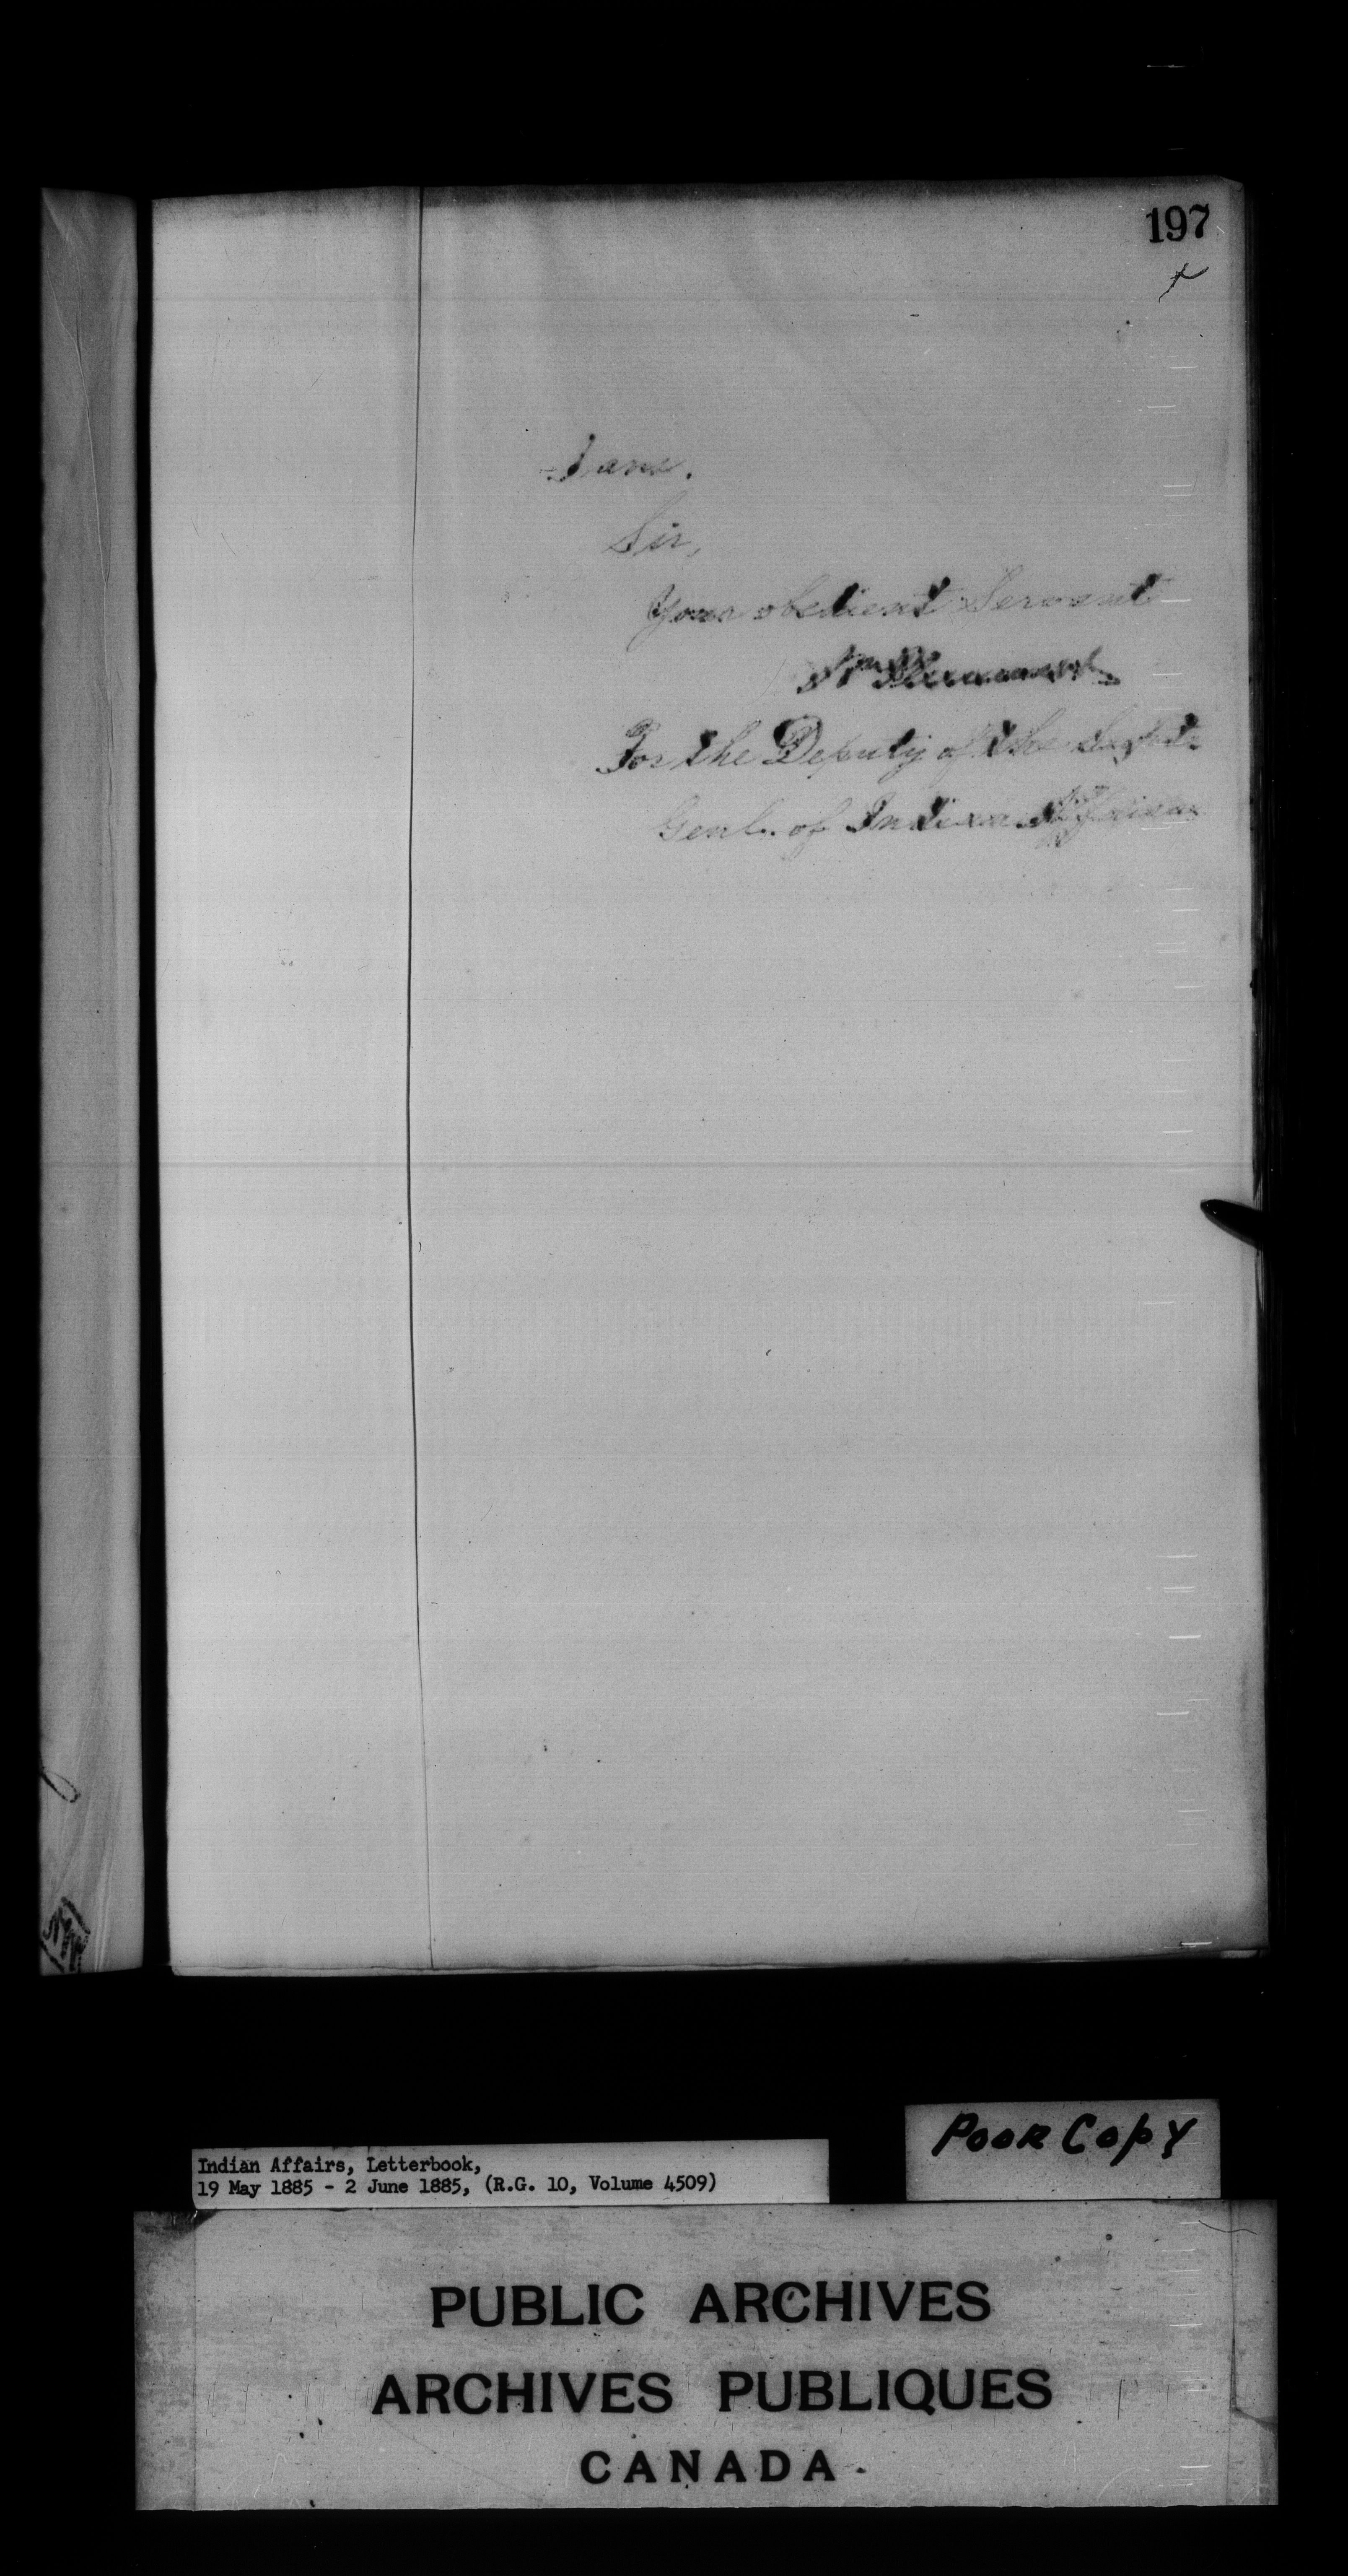 197
I am,
Sir,
Your obedient Servant
Wm
For the Deputy of the Supt.
Genl. of Indian Affairs
Poor Copy
Indian Affairs, Letterbook,
19 May 1885 - 2 June 1885, (R.G. 10, Volume 4509)
PUBLIC ARCHIVES
ARCHIVES PUBLIQUES
CANADA